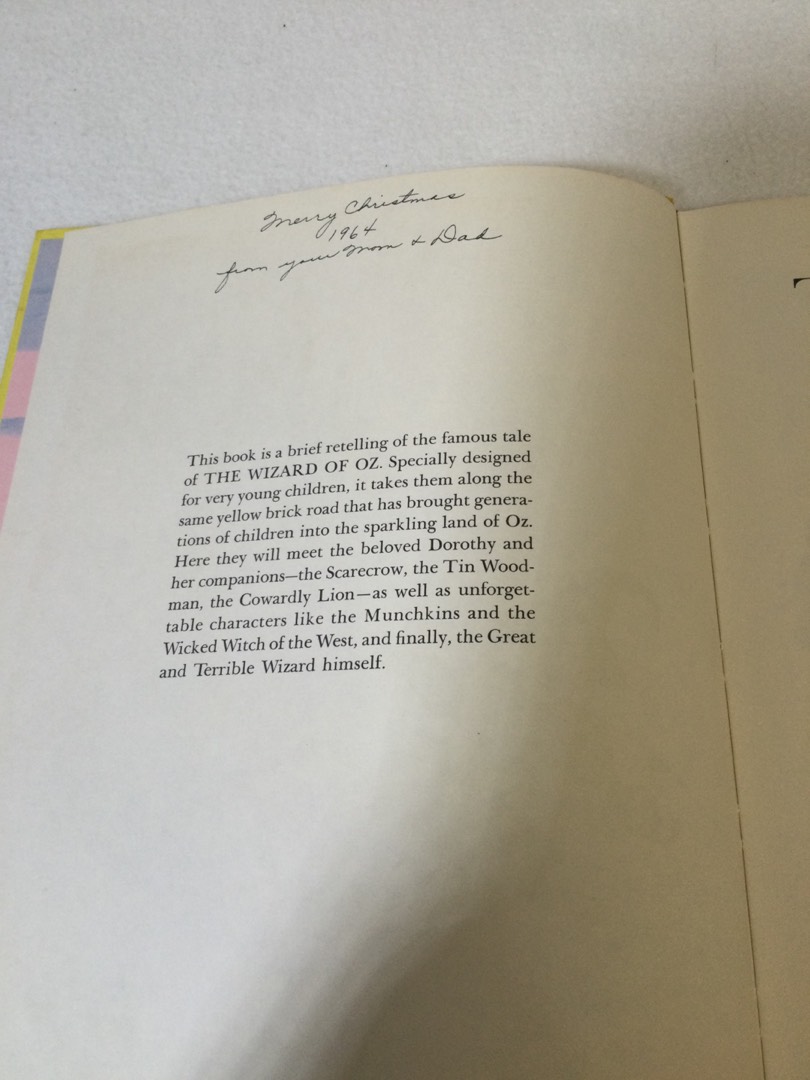 Merry Christmas
1964
from your Mom & Dad
This book is a brief retelling of the famous tale
of THE WIZARD OF OZ. Specially designed
for very young children, it takes them along the
same yellow brick road that has brought genera-
tions of children into the sparkling land of Oz.
Here they will meet the beloved Dorothy and
her companions—the Scarecrow, the Tin Wood-
man, the Cowardly Lion—as well as unforget-
table characters like the Munchkins and the
Wicked Witch of the West, and finally, the Great
and Terrible Wizard himself.